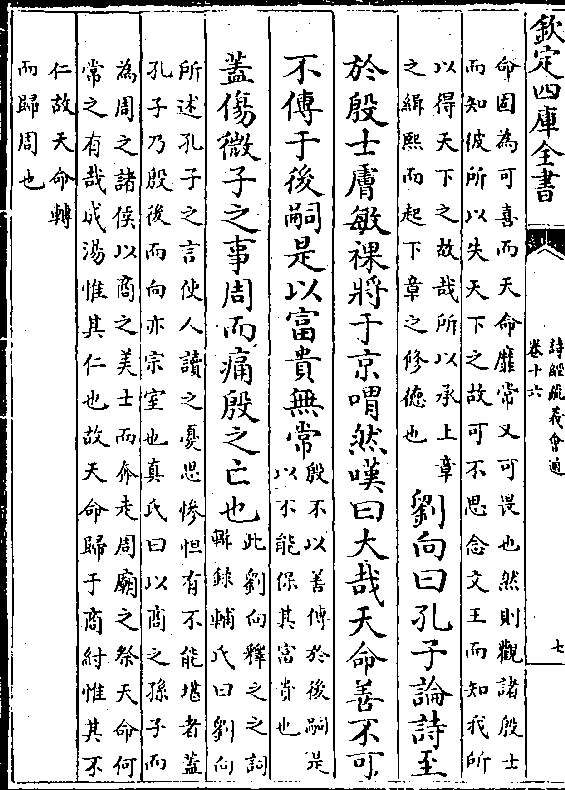 欽定四庫全書
詩經疏義會通
卷十六
七
命固為可喜而天命靡常又可畏也然則觀諸殷士
而知彼所以失天下之故可不思念文王而知我所
以得天下之故哉所以承上章
之緝熙而起下章之修德也
劉向曰孔子論詩至
於殷士膚敏祼將于京喟然嘆曰大哉天命善不可
不傳于後嗣是以富貴無常
殷不以善傳於後嗣是
以不能保其富貴也
蓋傷微子之事周而痛殷之亡也
此劉向釋之之詞
輯録輔氏曰劉向
所述孔子之言使人讀之憂思慘怛有不能堪者蓋
孔子乃殷後而向亦宗室也真氏曰以商之孫子而
為周之諸侯以商之美士而奔走周廟之祭天命何
常之有哉成湯惟其仁也故天命歸于商紂惟其不
仁故天命轉
而歸周也